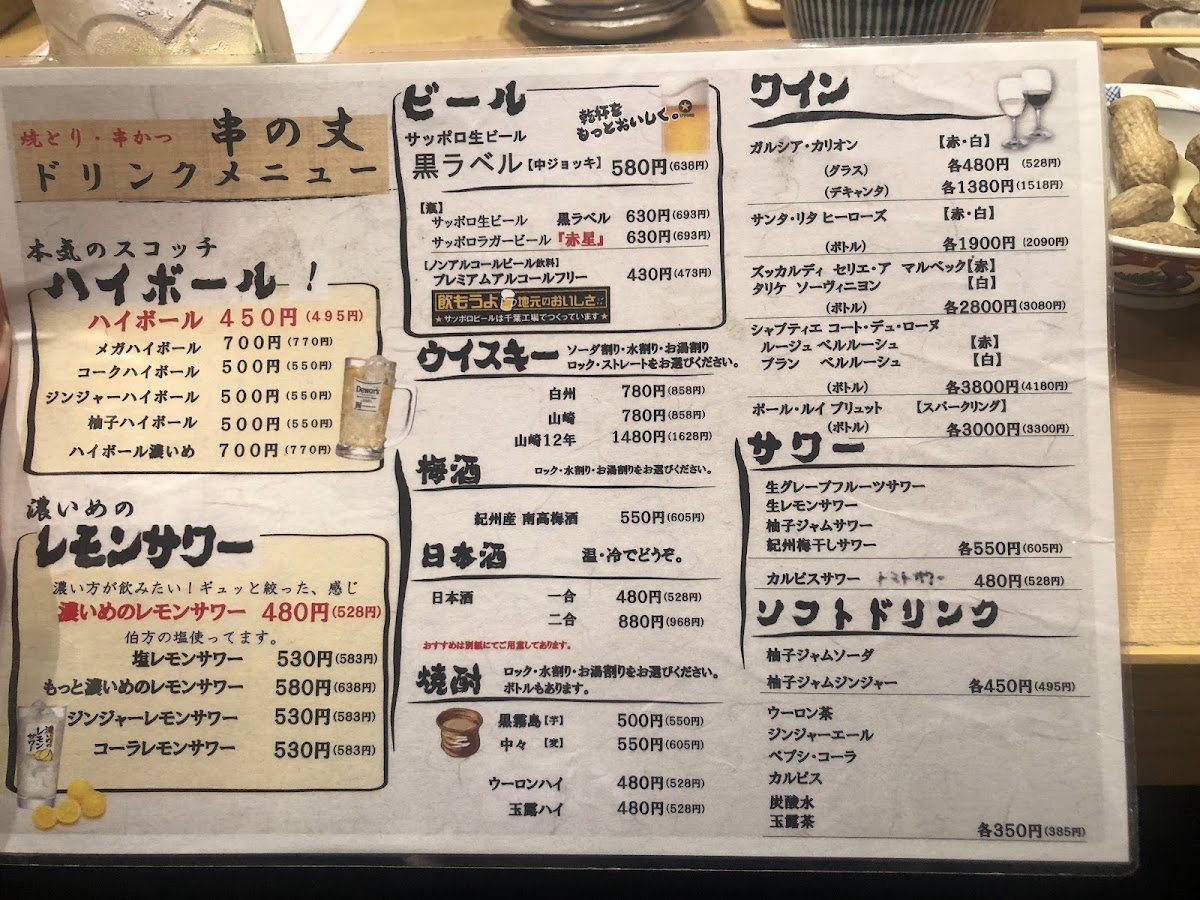 焼とり・串かつ 串の丈
ドリンクメニュー
本気のスコッチ
ハイボール!
ハイボール 450円(495円)
メガハイボール 700円(770円)
コークハイボール 500円(550円)
ジンジャーハイボール 500円(550円)
柚子ハイボール 500円(550円)
ハイボール濃いめ 700円(770円)
Dewar's
濃いめの
レモンサワー
濃い方が飲みたい!ギュッと絞った、感じ
濃いめのレモンサワー 480円(528円)
伯方の塩使ってます。
塩レモンサワー 530円(583円)
もっと濃いめのレモンサワー 580円(638円)
ジンジャーレモンサワー 530円(583円)
コーラレモンサワー 530円(583円)
濃いめの
レモン
サワー
ビール
乾杯を
もっとおいしく。
サッポロ生ビール
黒ラベル【中ジョッキ】 580円(638円)
【瓶】
サッポロ生ビール 黒ラベル 630円(693円)
サッポロラガービール『赤星』 630円(693円)
【ノンアルコールビール飲料】
プレミアムアルコールフリー 430円(473円)
飲もうよ 地元のおいしさ!!
★サッポロビールは千葉工場でつくっています★
ウイスキー
ソーダ割り・水割り・お湯割り
ロック・ストレートをお選びください。
白州 780円(858円)
山崎 780円(858円)
山崎12年 1480円(1628円)
梅酒 ロック・水割り・お湯割りをお選びください。
紀州産 南高梅酒 550円(605円)
日本酒 温・冷でどうぞ。
日本酒 一合 480円(528円)
二合 880円(968円)
おすすめは別紙にてご用意してあります。
焼酎
ロック・水割り・お湯割りをお選びください。
ボトルもあります。
黒霧島【芋】 500円(550円)
中々 【麦】 550円(605円)
ウーロンハイ 480円(528円)
玉露ハイ 480円(528円)
ワイン
ガルシア・カリオン 【赤・白】
(グラス) 各480円(528円)
(デキャンタ) 各1380円(1518円)
サンタ・リタ ヒーローズ 【赤・白】
(ボトル) 各1900円(2090円)
ズッカルディ セリエ・ア マルベック【赤】
タリケ ソーヴィニヨン 【白】
(ボトル) 各2800円(3080円)
シャプティエ コート・デュ・ローヌ
ルージュ ベルルーシュ 【赤】
ブラン ベルルーシュ 【白】
(ボトル) 各3800円(4180円)
ポール・ルイ ブリュット 【スパークリング】
(ボトル) 各3000円(3300円)
サワー
生グレープフルーツサワー
生レモンサワー
柚子ジャムサワー
紀州梅干しサワー 各550円(605円)
カルピスサワー トマトサワー 480円(528円)
ソフトドリンク
柚子ジャムソーダ
柚子ジャムジンジャー 各450円(495円)
ウーロン茶
ジンジャーエール
ペプシ・コーラ
カルピス
炭酸水
玉露茶 各350円(385円)